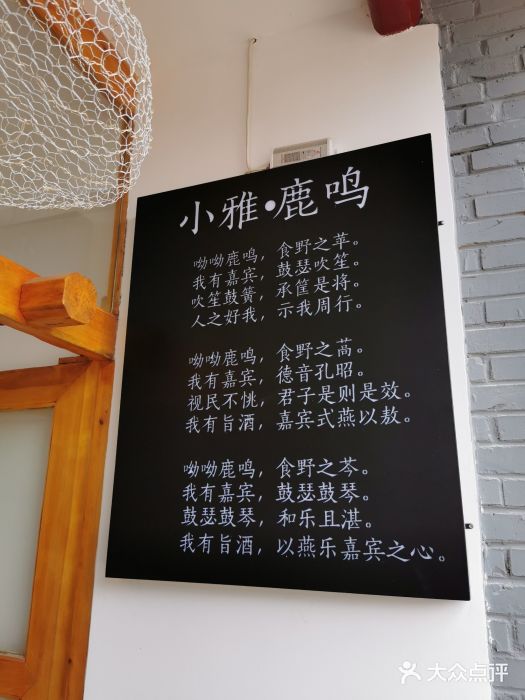 小雅·鹿鸣
呦呦鹿鸣，食野之苹。
我有嘉宾，鼓瑟吹笙。
吹笙鼓簧，承筐是将。
人之好我，示我周行。
呦呦鹿鸣，食野之蒿。
我有嘉宾，德音孔昭。
视民不恌，君子是则是效。
我有旨酒，嘉宾式燕以敖。
呦呦鹿鸣，食野之芩。
我有嘉宾，鼓瑟鼓琴。
鼓瑟鼓琴，和乐且湛。
我有旨酒，以燕乐嘉宾之心。
大众点评